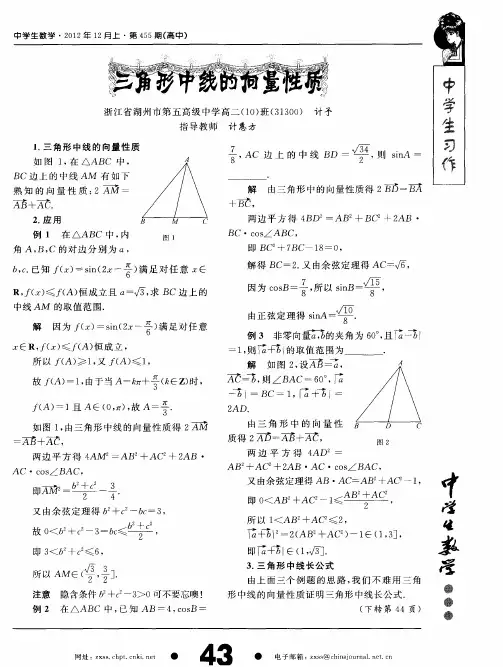 中学生数学·2012年12月上·第455期(高中)
三角形中线的向量性质
浙江省湖州市第五高级中学高二(10)班(31300) 计予
指导教师 计惠方
1.三角形中线的向量性质
如图1,在△ABC中,
BC边上的中线AM有如下
熟知的向量性质:2AM⃗=
AB⃗+AC⃗.
2.应用
例1 在△ABC中,内
角A,B,C的对边分别为a,
b,c,已知f(x)=sin(2x-π/6)满足对任意x∈
R,f(x)≤f(A)恒成立且a=√3,求BC边上的
中线AM的取值范围.
解 因为f(x)=sin(2x-π/6)满足对任意
x∈R,f(x)≤f(A)恒成立,
所以f(A)≥1,又f(A)≤1,
故f(A)=1,由于当A=kπ+π/3(k∈Z)时,
f(A)=1且A∈(0,π),故A=π/3.
如图1,由三角形中线的向量性质得2AM⃗
=AB⃗+AC⃗,
两边平方得4AM²=AB²+AC²+2AB·
AC·cos∠BAC,
即AM⃗²=(b²+c²)/2-3/4.
又由余弦定理得b²+c²-bc=3,
故0<b²+c²-3=bc≤(b²+c²)/2,
即3<b²+c²≤6,
所以AM∈(√3/2,3/2].
注意 隐含条件b²+c²-3>0可不要忘噢!
例2 在△ABC中,已知AB=4,cosB=
A
B M C
图1
7/8,AC边上的中线BD=√34/2,则sinA=
______.
解 由三角形中的向量性质得2BD⃗=BA⃗
+BC⃗,
两边平方得4BD²=AB²+BC²+2AB·
BC·cos∠ABC,
即BC²+7BC-18=0,
解得BC=2.又由余弦定理得AC=√6,
因为cosB=7/8,所以sinB=√15/8,
由正弦定理得sinA=√10/8.
例3 非零向量a⃗,b⃗的夹角为60°,且|a⃗-b⃗|
=1,则|a⃗+b⃗|的取值范围为______.
解 如图2,设AB⃗=a⃗,
AC⃗=b⃗,则∠BAC=60°,|a⃗
-b⃗|=BC=1,|a⃗+b⃗|=
2AD.
由三角形中的向量性
质得2AD⃗=AB⃗+AC⃗,
两边平方得4AD²=
AB²+AC²+2AB·AC·cos∠BAC,
又由余弦定理得AB·AC=AB²+AC²-1,
即0<AB²+AC²-1≤(AB²+AC²)/2,
所以1<AB²+AC²≤2,
|a⃗+b⃗|²=2(AB²+AC²)-1∈(1,3],
即|a⃗+b⃗|∈(1,√3].
3.三角形中线长公式
由上面三个例题的思路,我们不难用三角
形中线的向量性质证明三角形中线长公式.
(下转第44页)
A
B D C
图2
中学生习作
中学生数学
网址:zxss.chpt.cnki.net ● 43 ● 电子邮箱:zxss@chinajournal.net.cn